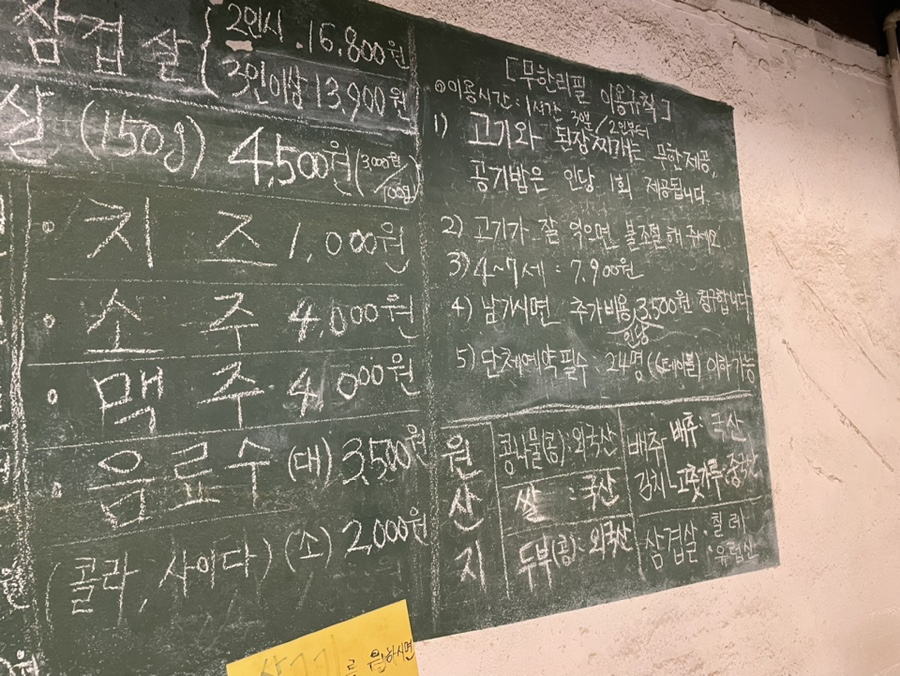 삼겹살 2인시 16,800원
3인이상 13,900원
살 (150g) 4,500원 (3,000원/100g)
치즈 1,000원
소주 4,000원
맥주 4,000원
음료수 (대) 3,500원
(콜라, 사이다) (소) 2,000원
를 원하시면
[무한리필 이용규칙]
이용시간: 1시간 30분/2인부터
1) 고기와 된장찌개는 무한제공,
공기밥은 인당 1회 제공됩니다.
2) 고기가 잘 익으면 불조절 해 주세요
3) 4~7세 : 7,900원
4) 남기시면 추가비용 3,500원 청구합니다
인당
5) 단체예약 필수 24명 (6테이블) 이하가능
원산지
콩나물(콩): 외국산
배추김치 배추: 국산
고춧가루: 중국산
쌀 : 국산
두부(콩): 외국산
삼겹살 : 칠레
유럽산